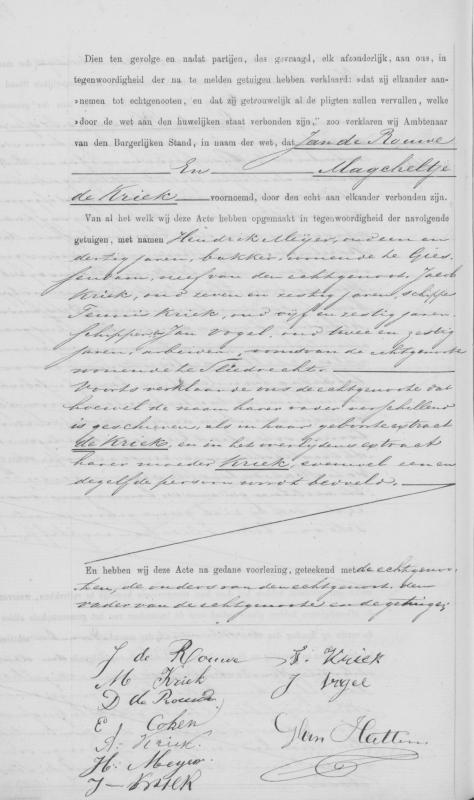 Dien ten gevolge en nadat partijen, des gevraagd, elk afzonderlijk, aan ons, in
tegenwoordigheid der na te melden getuigen hebben verklaard: »dat zij elkander aan-
»nemen tot echtgenooten, en dat zij getrouwelijk al de pligten zullen vervullen, welke
»door de wet aan den huwelijken staat verbonden zijn," zoo verklaren wij Ambtenaar
van den Burgerlijken Stand, in naam der wet, dat Jan de Rouwe
En Magcheltje
de Kriek voornoemd, door den echt aan elkander verbonden zijn.
Van al het welk wij deze Acte hebben opgemaakt in tegenwoordigheid der navolgende
getuigen, met namen Hendrik Meijer, oud een en
dertig jaren, bakker, wonende te Gies-
sendam, neef van den echtgenoot, Jacob
Kriek, oud zeven en zestig jaren, schipper
Teunis Kriek, oud vijf en zestig jaren,
schipper, & Jan Vogel, oud twee en zestig
jaren, arbeider, ooms van de echtgenoote
wonende te Sliedrecht.
Voorts verklaarde ons de echtgenoote dat
hoewel de naam haars vader verschillend
is geschreven, als in haar geboorteextract
de Kriek, en in het overlijdens extract
harer moeder Kriek, evenwel een en
dezelfde persoon wordt bedoeld.
En hebben wij deze Acte na gedane voorlezing, geteekend met de echtgenoo-
ten, de ouders van den echtgenoot, den
vader van de echtgenoote en de getuigen
J de Rouwe T. Kriek
M Kriek J Vogel
D de Rouwe
E Cohen
A. Kriek.
H. Meyer
J Kriek